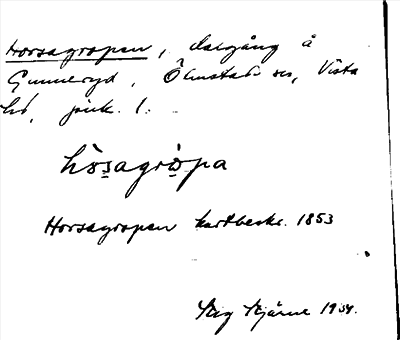 Horsagropen, dalgång å
Gunneryd, Ölmstads sn, Vista
hd, jönk. l.
hòs̱agrò̱pa
Horsagropen kartbeskr. 1853
Stig Hjärne 1934.